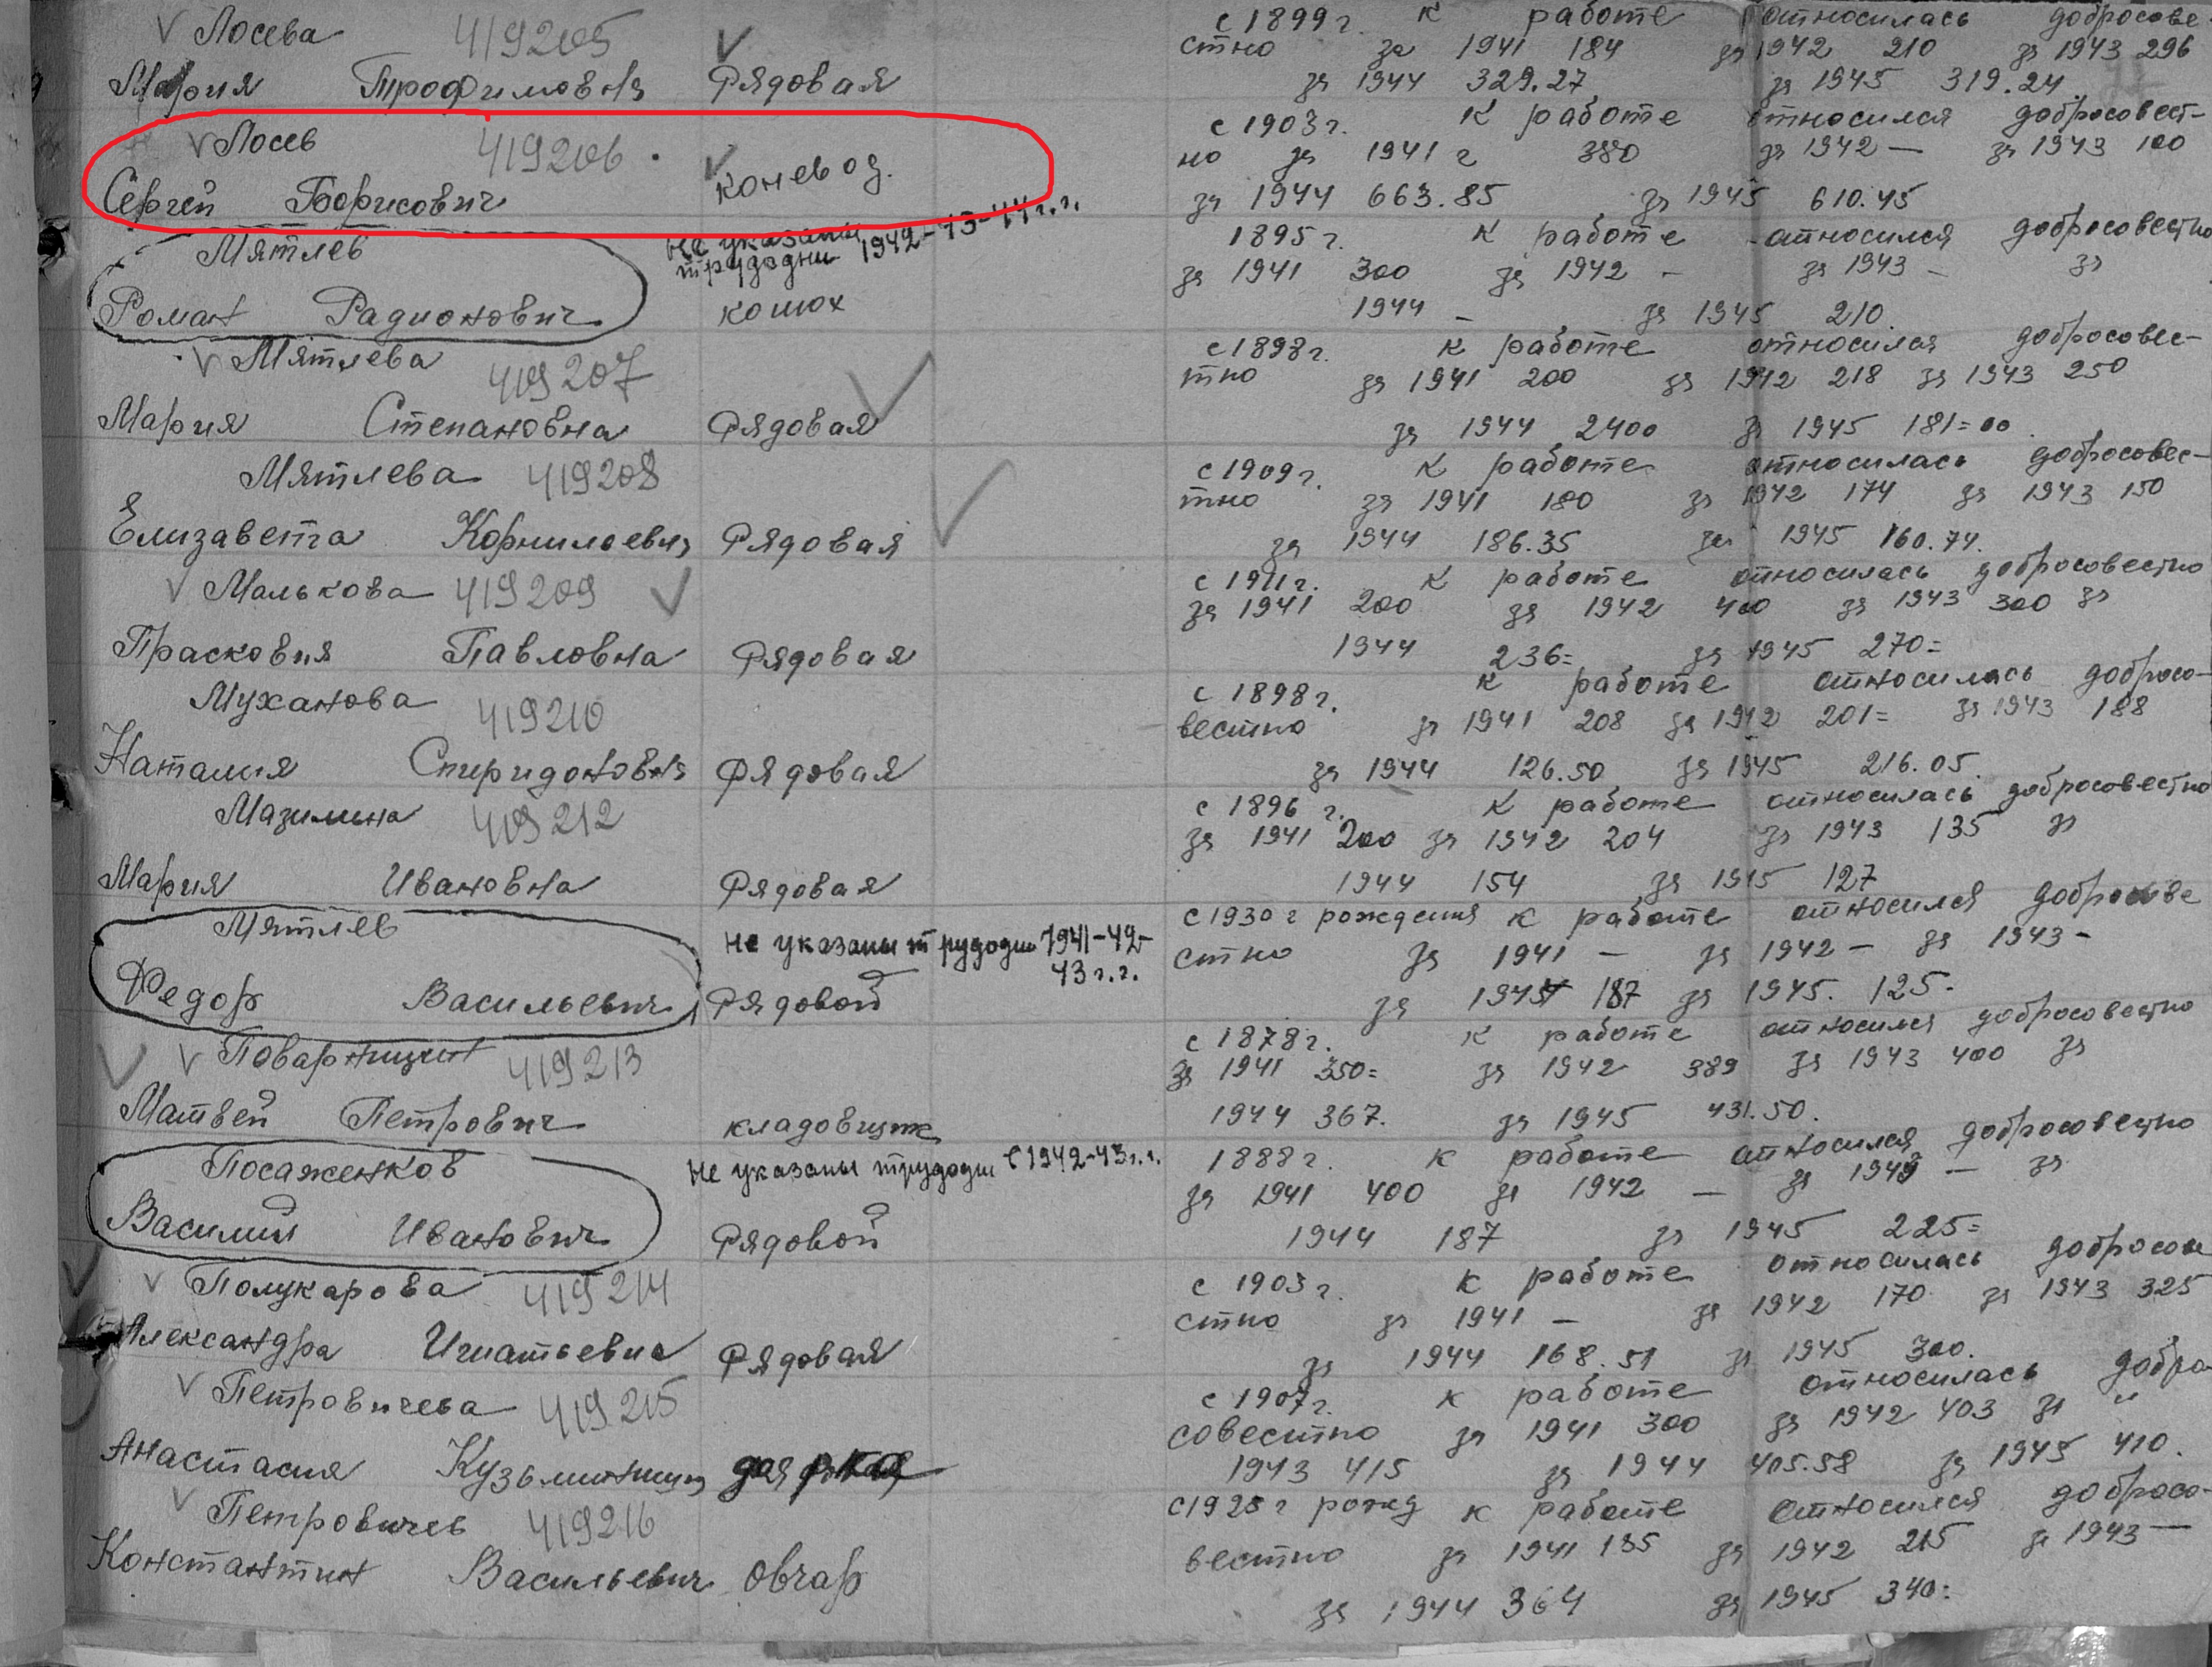 Лосева 419205 с 1899 г. к работе относилась добросове-
стно за 1941 184 за 1942 210 за 1943 296
Мария Трофимовна Рядовая за 1944 329.27 за 1945 319.24
Лосев 419206 с 1903 г. к работе относился добросовест-
но за 1941 г 380 за 1942 — за 1943 100
Сергей Борисович коневод. за 1944 663.85 за 1945 610.45
Мятлев не указаны трудодни 1942-43-44 г.г. 1895 г. к работе относился добросовестно
за 1941 300 за 1942 — за 1943 — за
Роман Радионович конюх 1944 — за 1945 210
Мятлева 419207 с 1898 г. к работе относился добросовес-
тно за 1941 200 за 1942 218 за 1943 250
Мария Степановна Рядовая за 1944 2400 за 1945 181=00
Мятлева 419208 с 1909 г. к работе относилась добросовес-
тно за 1941 180 за 1942 174 за 1943 150
Елизавета Корнилоевна Рядовая за 1944 186.35 за 1945 160.74.
Малькова 419209 с 1911 г. к работе относилась добросовестно
за 1941 200 за 1942 400 за 1943 300 за
Прасковия Павловна Рядовая 1944 236= за 1945 270=
Муханова 419210 с 1898 г. к работе относилась добросо-
вестно за 1941 208 за 1942 201= за 1943 188
Наталия Спиридоновна Рядовая за 1944 126.50 за 1945 216.05
Мазилина 419212 с 1896 г. к работе относилась добросовестно
за 1941 200 за 1942 204 за 1943 135 за
Мария Ивановна Рядовая 1944 154 за 1945 127
Мятлев не указаны трудодни 1941-42-43 г.г. с 1930 г рождения к работе относился добросове
стно за 1941 — за 1942 — за 1943 -
Федор Васильевич Рядовой за 1944 187 за 1945. 125.
Поварницин 419213 с 1878 г. к работе относился добросовестно
за 1941 350= за 1942 389 за 1943 400 за
Матвей Петрович кладовщик 1944 367. за 1945 431.50.
Посаженков не указаны трудодни с 1942-43 г.г. 1888 г. к работе относился добросовестно
за 1941 400 за 1942 — за 1943 — за
Василий Иванович Рядовой 1944 187 за 1945 225=
Полукарова 419214 с 1903 г. к работе относилась добросове
стно за 1941 — за 1942 170 за 1943 325
Александра Игнатьевна Рядовая за 1944 168.51 за 1945 300.
Петровичева 419215 с 1907 г. к работе относилась добро-
совестно за 1941 300 за 1942 403 за "
Анастасия Кузьминишна доярка 1943 415 за 1944 405.58 за 1945 410.
Петровичев 419216 с 1925 г рожд к работе относился добросо-
вестно за 1941 135 за 1942 215 за 1943 —
Константин Васильевич Овчар за 1944 364 за 1945 340=